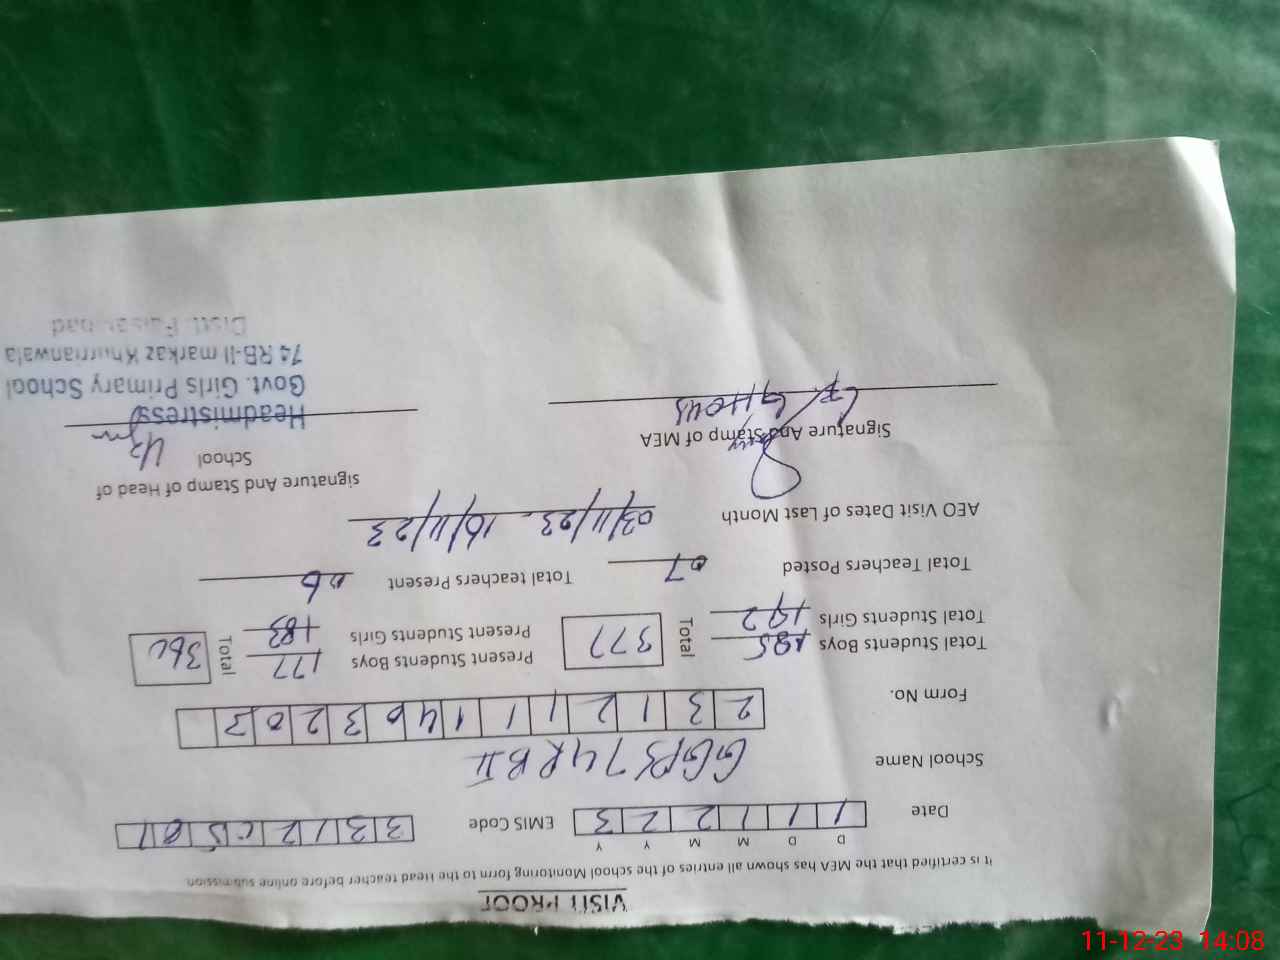 VISIT PROOF
It is certified that the MEA has shown all entries of the school Monitoring form to the Head teacher before online submission
D D M M Y Y
Date 1 1 1 2 2 3 EMIS Code 3 3 1 2 0 5 0 1
School Name GGPS 74 RB II
Form No. 2 3 1 2 1 1 1 4 6 3 2 0 2
Total Students Boys 185 Total 377 Present Students Boys 177 Total 360
Total Students Girls 192 Present Students Girls 183
Total Teachers Posted 07 Total teachers Present 06
AEO Visit Dates of Last Month 03/11/23 - 16/11/23
Signature And Stamp of MEA
signature And Stamp of Head of School
Headmistress
Govt. Girls Primary School
74 RB-II markaz Khurrianwala
Distt. Faisalabad
11-12-23 14:08